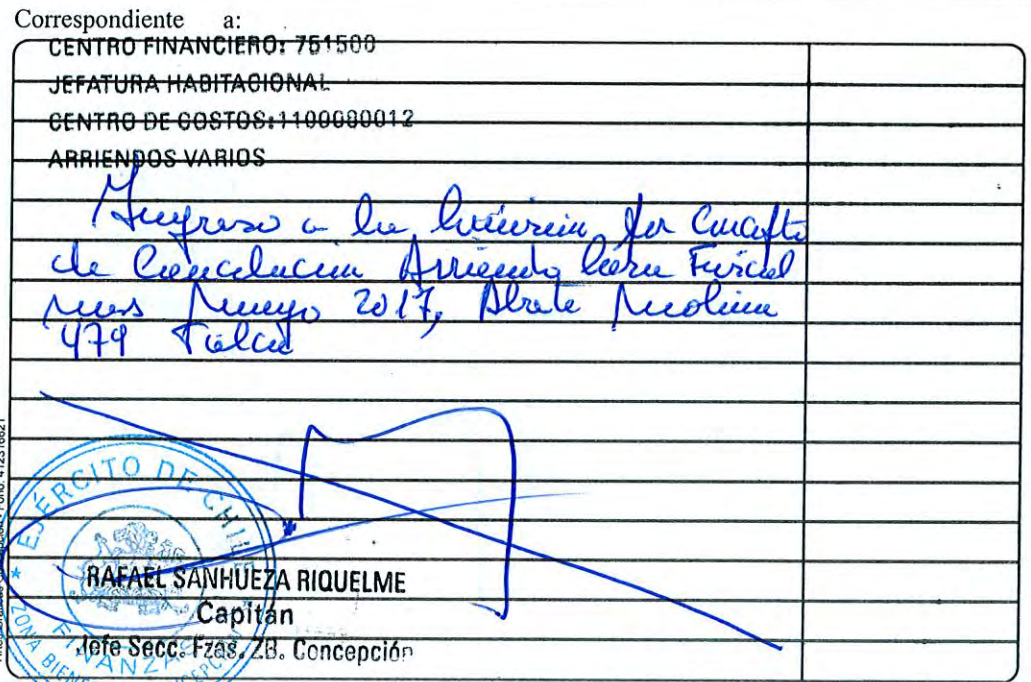 Correspondiente a:
CENTRO FINANCIERO: 751500
JEFATURA HABITACIONAL
CENTRO DE COSTOS: 1100080012
ARRIENDOS VARIOS
Ingreso a la por Concepto
de Cancelacion Arriendo Casa Fiscal
mes Mayo 2017, Abate Molina
479 Talca
EJÉRCITO DE CHILE
RAFAEL SANHUEZA RIQUELME
Capitán
Jefe Secc. Fzas. ZB. Concepción
FINANZAS